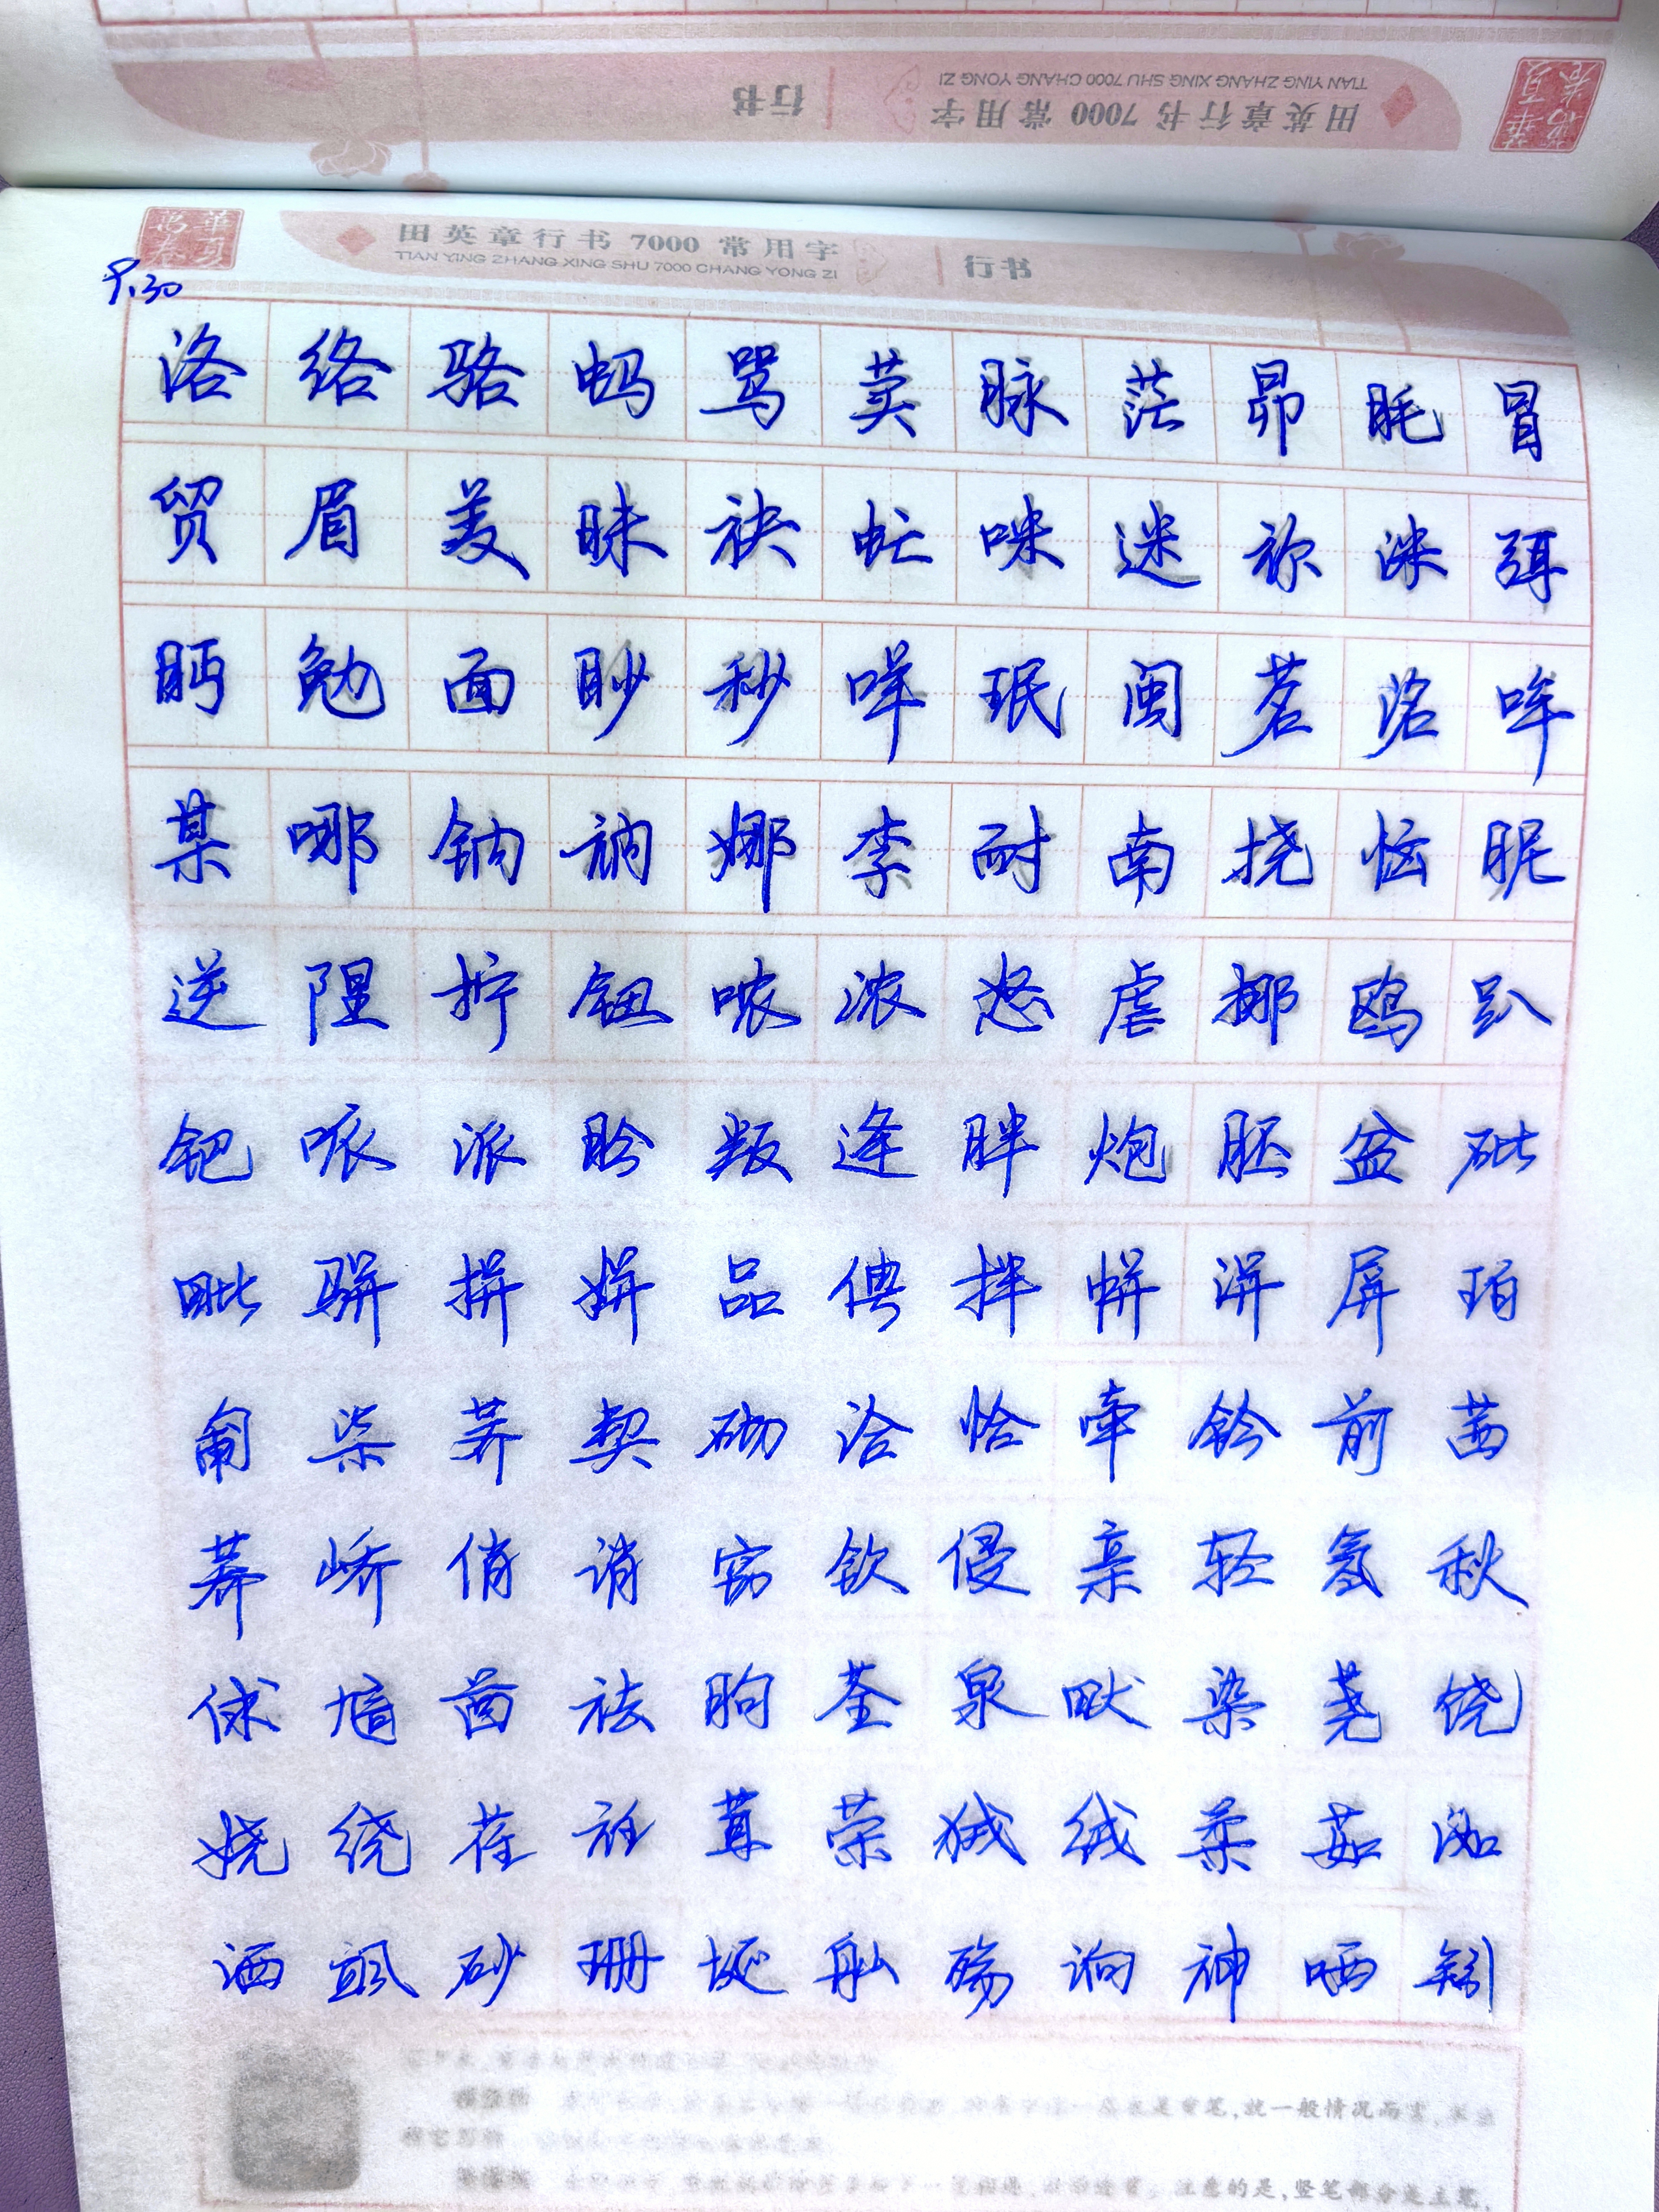 行书
田英章行书 7000 常用字
TIAN YING ZHANG XING SHU 7000 CHANG YONG ZI
华夏万卷
华夏万卷
田英章行书 7000 常用字
TIAN YING ZHANG XING SHU 7000 CHANG YONG ZI
行书
P.30
洛 络 骆 蚂 骂 荬 脉 茫 昴 眊 冒
贸 眉 美 昧 袂 虻 咪 迷 祢 洣 弭
眄 勉 面 眇 秒 咩 珉 闽 茗 洺 哞
某 哪 钠 衲 娜 柰 耐 南 挠 恼 昵
逆 陧 拧 钮 哝 浓 怒 虐 挪 鸥 趴
钯 哌 派 盼 叛 逄 胖 炮 胚 盆 砒
毗 骈 拼 姘 品 俜 拌 帡 洴 屏 珀
匍 柒 荠 契 砌 洽 恰 牵 钤 前 茜
荞 峤 俏 诮 窃 钦 侵 亲 轻 氢 秋
俅 酋 祛 朐 荃 泉 畎 染 荛 饶
娆 绕 荏 衽 茸 荣 狨 绒 柔 茹 洳
洒 飒 砂 珊 埏 舢 殇 响 神 哂 矧
是重笔,就一般情况而言,
注意的是,竖笔部分是主笔,